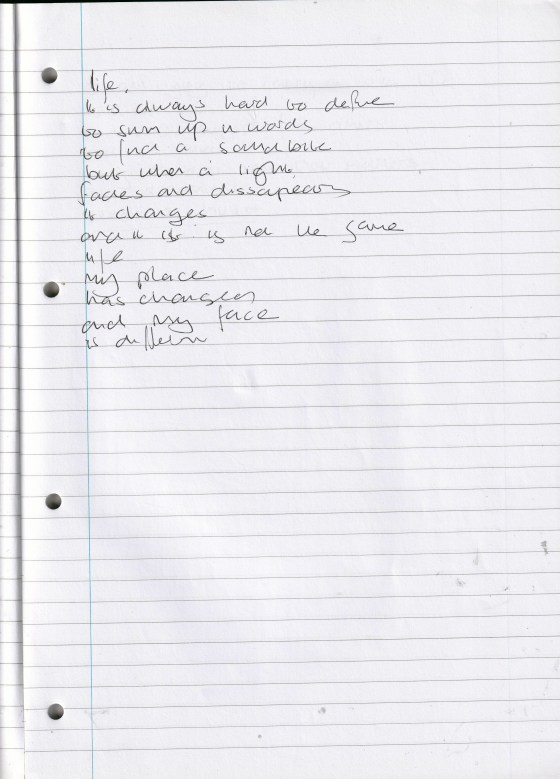 life.
it is always hard to define
to sum up in words
to find a soundbite
but when a light
fades and dissapears
it changes
and it is not the same
life
my place
has changed
and my face
is different